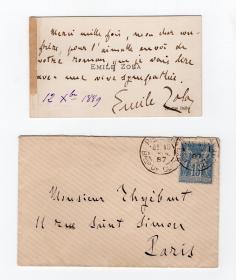 Merci mille fois, mon cher con-
frère, pour l'aimable envoi de
votre roman que je vais lire
EMILE ZOLA
avec une vive sympathie.
12 Xbre 1889
Emile Zola
87
15
Monsieur Thyébaut
11 rue Saint Simon
Paris